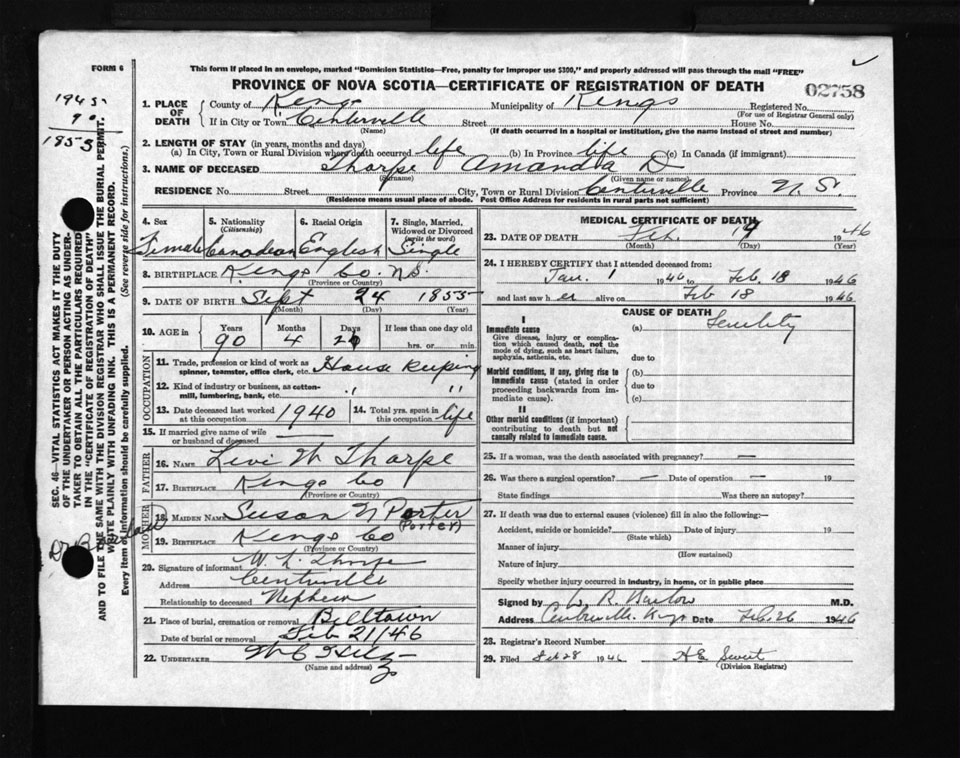 FORM 6
This form if placed in an envelope, marked "Dominion Statistics—Free, penalty for improper use $300," and properly addressed will pass through the mail "FREE"
PROVINCE OF NOVA SCOTIA—CERTIFICATE OF REGISTRATION OF DEATH
02758
1945
90
1855
1. PLACE OF DEATH County of Kings Municipality of Kings Registered No.
(For use of Registrar General only)
If in City or Town Centerville Street House No.
(Name) (If death occurred in a hospital or institution, give the name instead of street and number)
2. LENGTH OF STAY (in years, months and days)
(a) In City, Town or Rural Division where death occurred life (b) In Province life (c) In Canada (if immigrant)
3. NAME OF DECEASED Tharpe Amanda D
(Surname) (Given name or names)
RESIDENCE No. Street City, Town or Rural Division Centerville Province N. S.
(Residence means usual place of abode. Post Office Address for residents in rural parts not sufficient)
4. Sex Female
5. Nationality (Citizenship) Canadian
6. Racial Origin English
7. Single, Married, Widowed or Divorced (write the word) Single
8. BIRTHPLACE Kings Co. N.S.
(Province or Country)
9. DATE OF BIRTH Sept 24 1855
(Month) (Day) (Year)
10. AGE in Years 90 Months 4 Days If less than one day old hrs. or min.
OCCUPATION
11. Trade, profession or kind of work as spinner, teamster, office clerk, etc. House keeping
12. Kind of industry or business, as cotton-mill, lumbering, bank, etc. " "
13. Date deceased last worked at this occupation 1940
14. Total yrs. spent in this occupation life
15. If married give name of wife or husband of deceased —
FATHER
16. NAME Levi W Tharpe
17. BIRTHPLACE Kings Co
(Province or Country)
MOTHER
18. MAIDEN NAME Susan N Porter
(Porter)
19. BIRTHPLACE Kings Co
(Province or Country)
20. Signature of informant W. L. Thorpe
Address Centerville
Relationship to deceased Nephew
21. Place of burial, cremation or removal Billtown
Date of burial or removal Feb 21/46
22. UNDERTAKER
(Name and address)
MEDICAL CERTIFICATE OF DEATH
23. DATE OF DEATH Feb. 19 1946
(Month) (Day) (Year)
24. I HEREBY CERTIFY that I attended deceased from:
Jan. 1 1946 to Feb. 18 1946
and last saw her alive on Feb 18 1946
CAUSE OF DEATH
I
Immediate cause
Give disease, injury or complication which caused death, not the mode of dying, such as heart failure, asphyxia, asthenia, etc.
(a) Senility
due to
Morbid conditions, if any, giving rise to immediate cause (stated in order proceeding backwards from immediate cause).
(b)
due to
(c)
II
Other morbid conditions (if important) contributing to death but not causally related to immediate cause.
25. If a woman, was the death associated with pregnancy? —
26. Was there a surgical operation? — Date of operation — 19
State findings Was there an autopsy?
27. If death was due to external causes (violence) fill in also the following:—
Accident, suicide or homicide? Date of injury 19
(State which)
Manner of injury
(How sustained)
Nature of injury
Specify whether injury occurred in industry, in home, or in public place
Signed by R. Barlow M.D.
Address Centreville Kings Date Feb. 26 1946
28. Registrar's Record Number
29. Filed Feb 28 1946 H E Swect
(Division Registrar)
SEC. 46—VITAL STATISTICS ACT MAKES IT THE DUTY
OF THE UNDERTAKER OR PERSON ACTING AS UNDER-
TAKER TO OBTAIN ALL THE PARTICULARS REQUIRED
IN THE "CERTIFICATE OF REGISTRATION OF DEATH"
AND TO FILE THE SAME WITH THE DIVISION REGISTRAR WHO SHALL ISSUE THE BURIAL PERMIT.
WRITE PLAINLY WITH UNFADING INK. THIS IS A PERMANENT RECORD.
Every item of information should be carefully supplied. (See reverse side for instructions.)